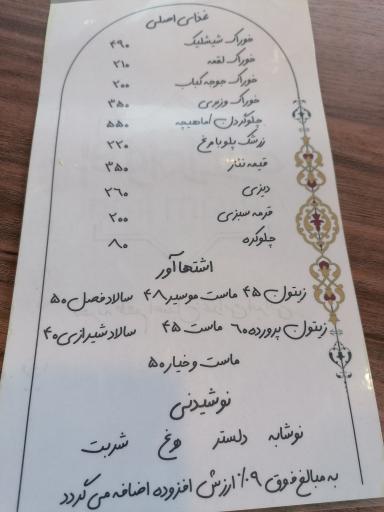 غذای اصلی
خوراک شیشلیک ۴۹۰
خوراک لقمه ۲۱۰
خوراک جوجه کباب ۲۰۰
خوراک وزیری ۳۵۰
چلوگردن/ماهیچه ۵۵۰
زرشک پلو با مرغ ۲۲۰
قیمه نثار ۳۵۰
دیزی ۲۶۰
قرمه سبزی ۲۰۰
چلوکره ۸۰
اشتها آور
زیتون ۴۵ ماست موسیر ۴۸ سالاد فصل ۵۰
زیتون پرورده ۶۰ ماست ۴۵ سالاد شیرازی ۴۰
ماست و خیار ۵۰
نوشیدنی
نوشابه دلستر دوغ شربت
به مبالغ فوق ۹٪ ارزش افزوده اضافه می گردد